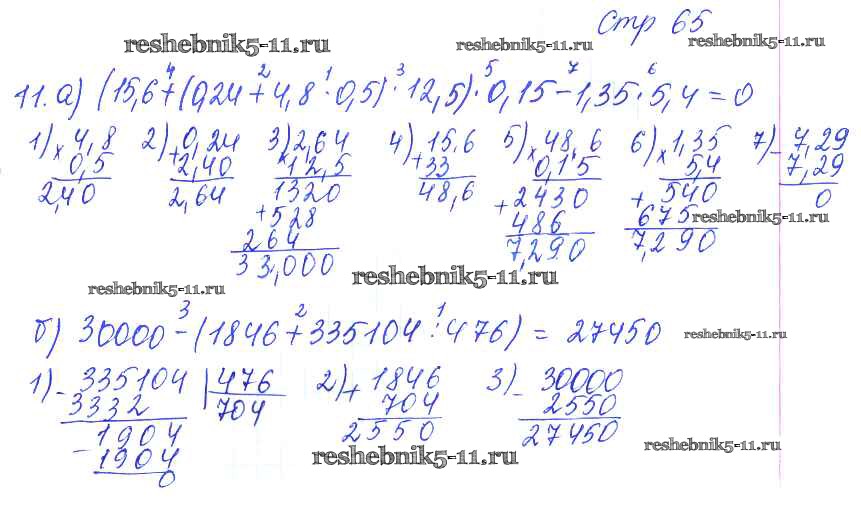 Стр 65
reshebnik5-11.ru reshebnik5-11.ru reshebnik5-11.ru
4 2 1 3 5 7 6
11. а) (15,6+(0,24+4,8·0,5)·12,5)·0,15-1,35·5,4=0
1) × 4,8 2) + 0,24 3) × 2,64 4) + 15,6 5) × 48,6 6) × 1,35 7) - 7,29
0,5 2,40 12,5 33 0,15 5,4 7,29
2,40 2,64 1320 48,6 + 2430 + 540 0
+ 528 486 675 reshebnik5-11.ru
264 7,290 7,290
33,000
reshebnik5-11.ru
reshebnik5-11.ru
3 2 1
б) 30000-(1846+335104:476) = 27450 reshebnik5-11.ru
1) - 335104 | 476 2) + 1846 3) - 30000
3332 704 704 2550
- 1904 2550 27450
1904 reshebnik5-11.ru reshebnik5-11.ru
0